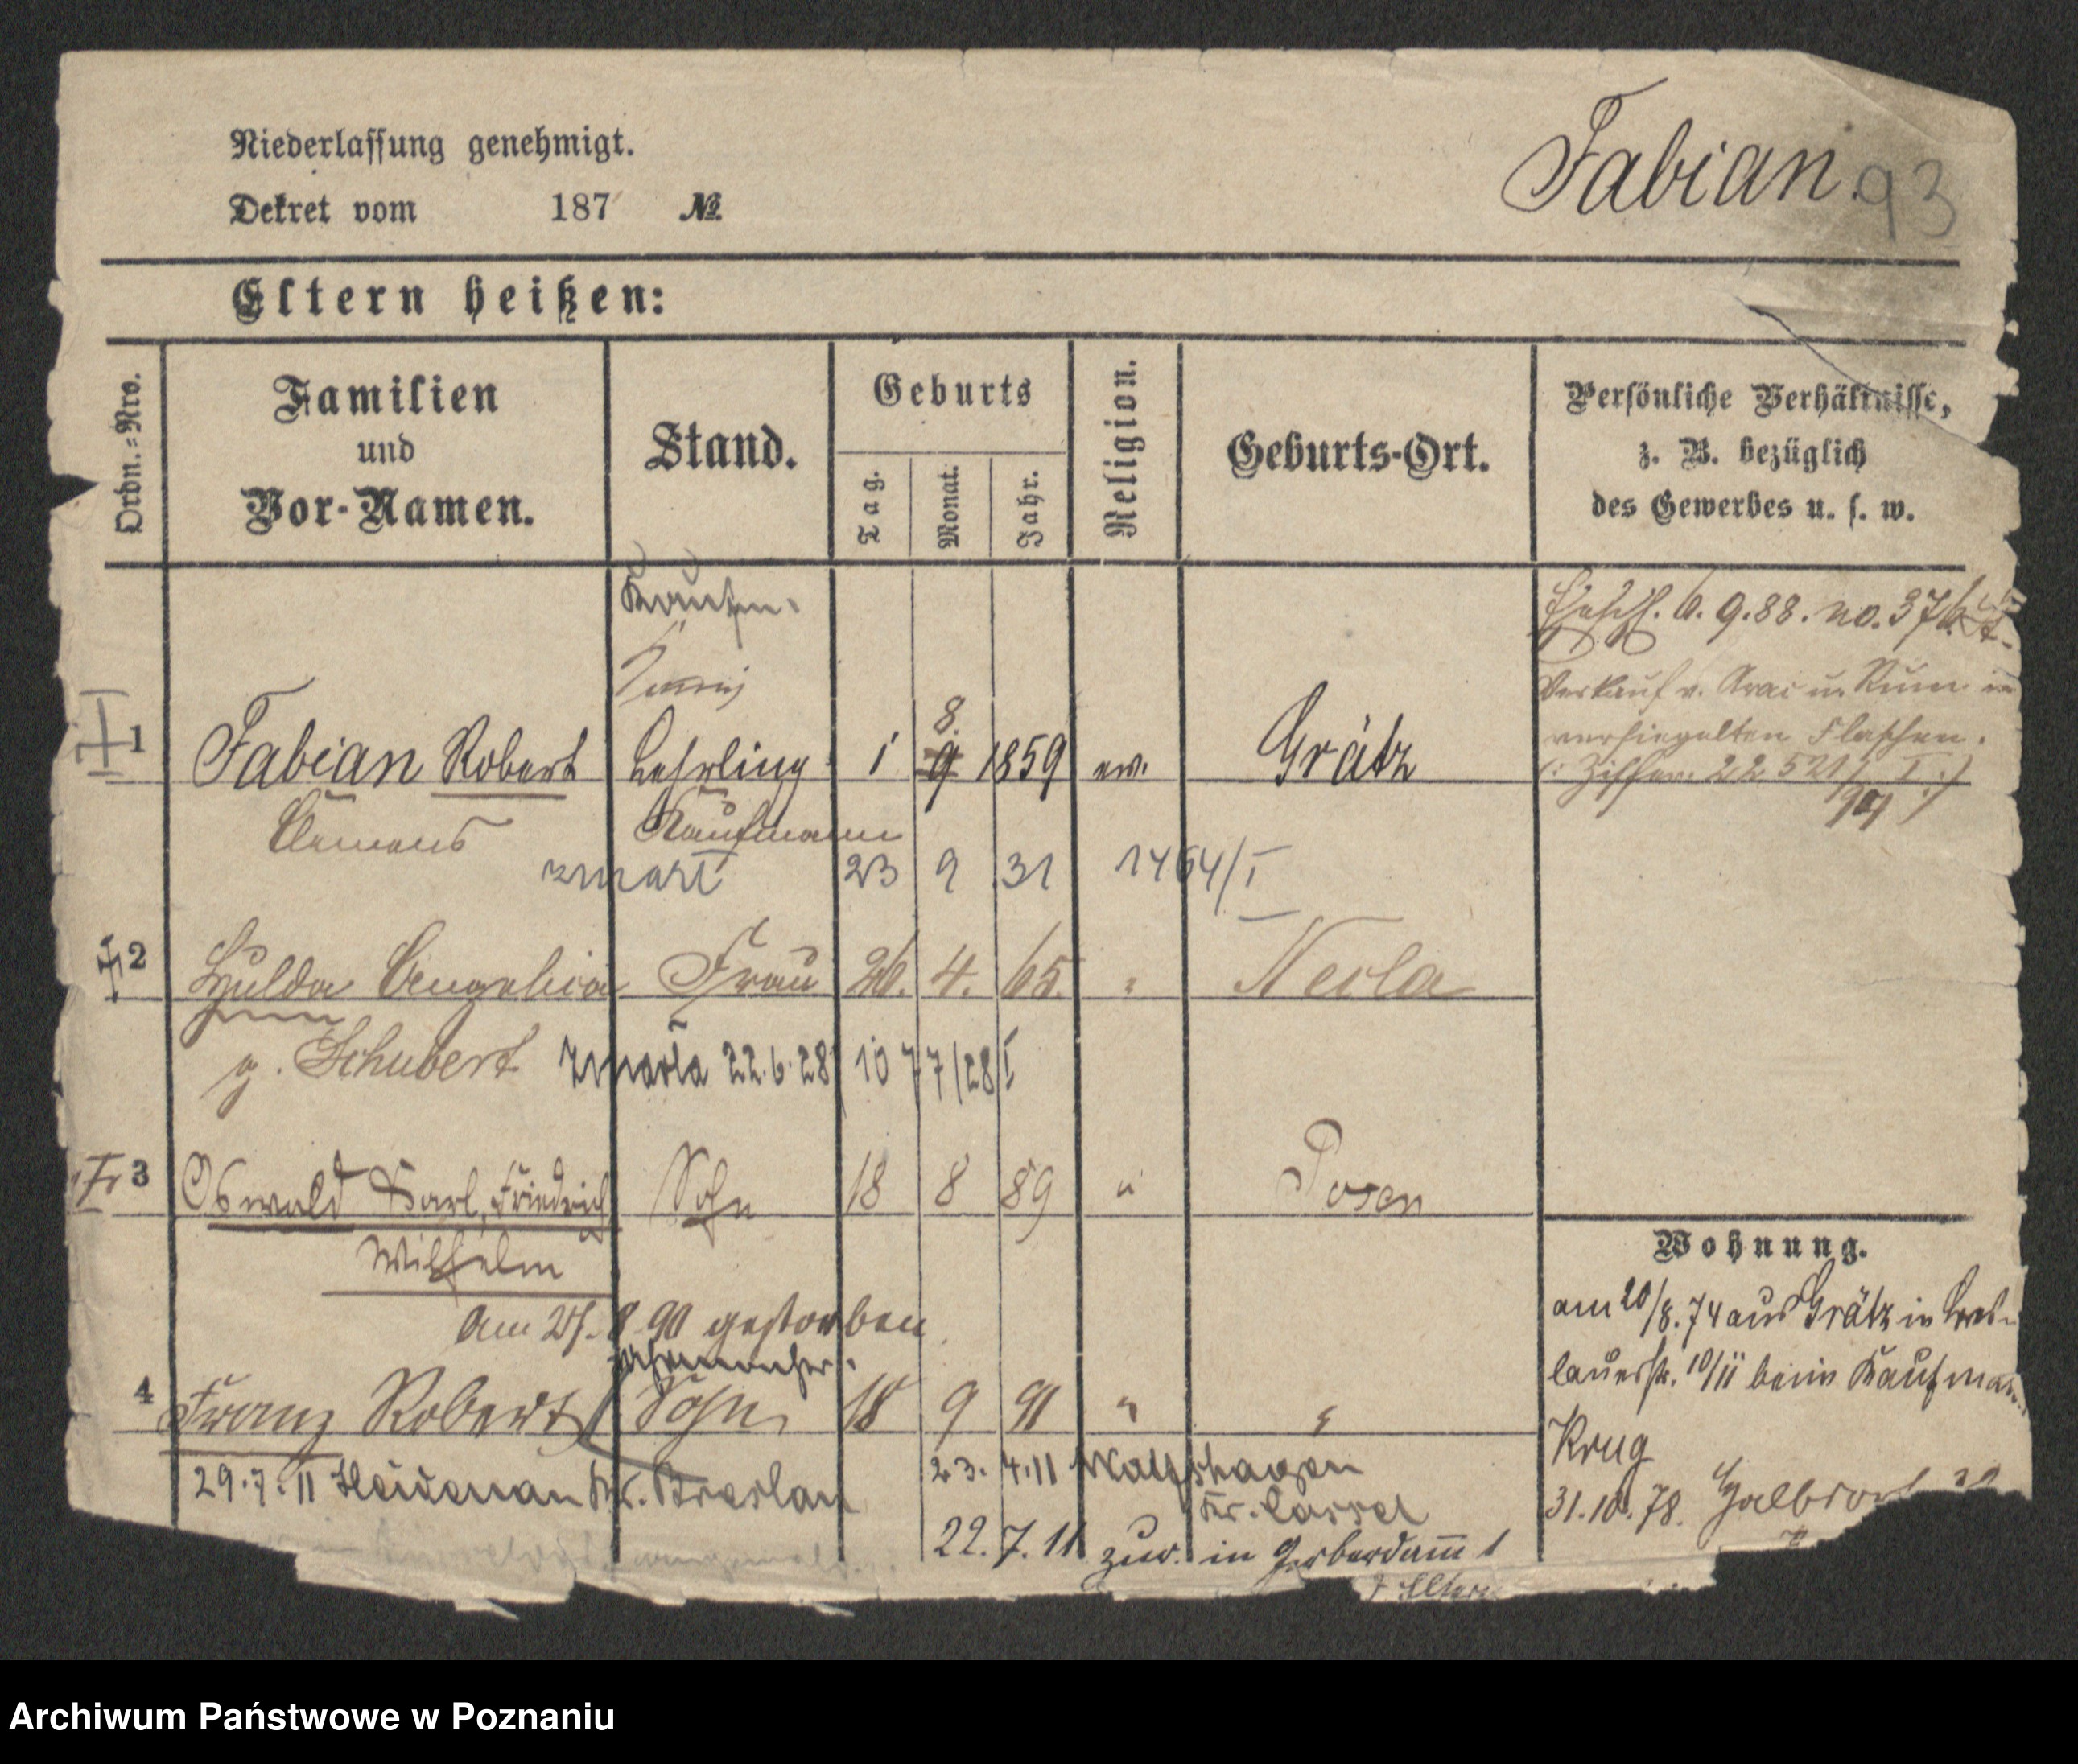 Niederlassung genehmigt.
Dekret vom 187 №
Fabian.
93
Eltern heißen:
Ordn.-Nro.
Familien
und
Vor-Namen.
Stand.
Geburts
Tag.
Monat.
Jahr.
Religion.
Geburts-Ort.
Persönliche Verhältnisse,
z. B. bezüglich
des Gewerbes u. s. w.
Kaufm.
6. 9. 88. no. 376
Verkauf v. Arac u. Rum in
versiegelten Flaschen.
8.
1 Fabian Robert Lehrling 1 9 1859 ev. Grätz
Clemens Kaufmann
zmarł 23 9 31 1464/I
2 Hulda Angelica Frau 26. 4. 65. " Neila
g. Schubert zmarła 22.6.28 1077/28 I
3 Oswald Karl, Friedrich Sohn 18 8 89 " Posen
Wilhelm
am 8 90 gestorben
4 Franz Robert Sohn 18 9 91 " "
23. 4. 11 Wolfshagen
29. 7. 11 Heidenau Kr. Breslau
Kr. Cassel
22. 7. 11 zur. in Gerberdamm 1
Wohnung.
am 20/8. 74 aus Grätz in Bres-
lauerstr. 10/11 beim Kaufman
Krug
31. 10. 78. Halbdorf
Archiwum Państwowe w Poznaniu